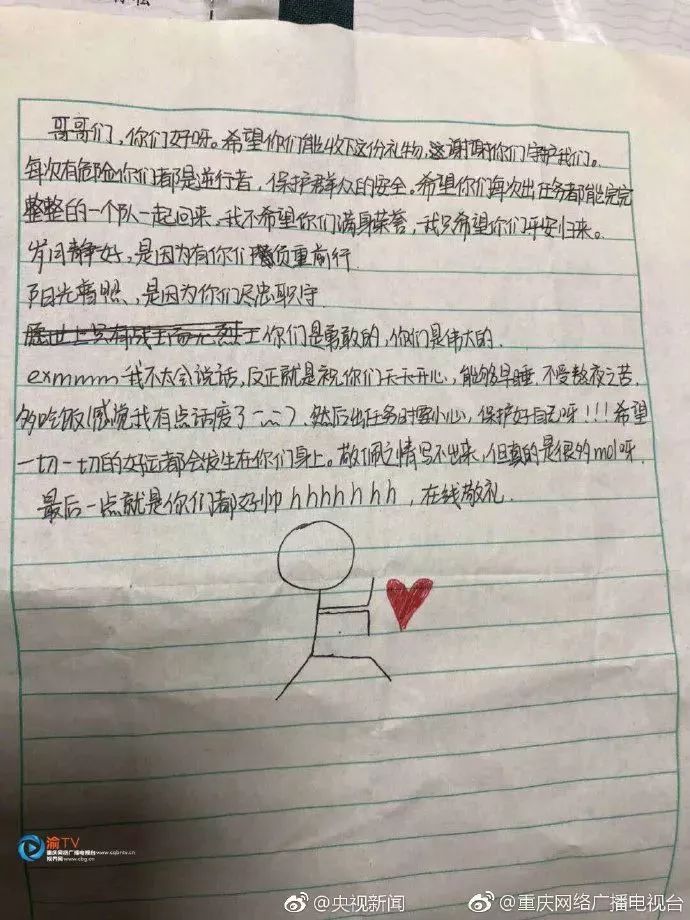 哥哥们，你们好呀。希望你们能收下这份礼物，谢谢你们守护我们。
每次有危险你们都是逆行者，保护群众的安全。希望你们每次出任务都能完完
整整的一个队一起回来，我不希望你们满身荣誉，我只希望你们平安归来。
岁月静好，是因为有你们负重前行
阳光普照，是因为你们尽忠职守
愿世上只有战士而无烈士 你们是勇敢的，你们是伟大的.
exmmm 我不太会说话，反正就是祝你们天天开心，能够早睡，不受熬夜之苦
多吃饭(感觉我有点话废了)，然后出任务时要小心，保护好自己呀！！！希望
一切一切的好运都会发生在你们身上。敬佩之情写不出来，但真的是很多mol呀.
最后一点就是你们都好帅hhhhhhh，在线敬礼.
渝TV
重庆网络广播电视台 www.cqbntv.cn
视界网 www.cbg.cn
@央视新闻
@重庆网络广播电视台